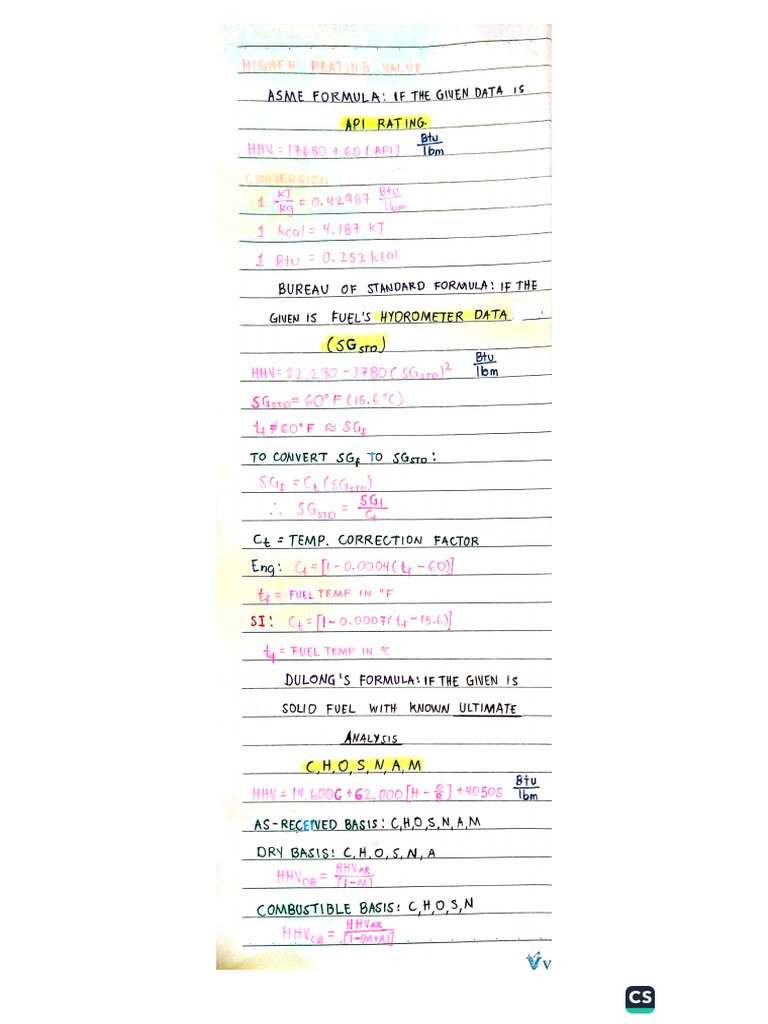 HIGHER HEATING VALUE
ASME FORMULA: IF THE GIVEN DATA IS
API RATING.
HHV = 17680 + 60 (API) Btu/lbm
CONVERSION
1 KJ/kg = 0.42987 Btu/lbm
1 kcal = 4.187 KJ
1 Btu = 0.252 kcal
BUREAU OF STANDARD FORMULA: IF THE
GIVEN IS FUEL'S HYDROMETER DATA
(SG_STD)
HHV = 22,230 - 3780 (SG_STD)² Btu/lbm
SG_STD = 60°F (15.6°C)
t_f ≠ 60°F ≈ SG_f
TO CONVERT SG_f TO SG_STD:
SG_f = C_t (SG_STD)
∴ SG_STD = SG_f/C_t
C_t = TEMP. CORRECTION FACTOR
Eng: C_t = [1 - 0.0004 (t_f - 60)]
t_f = FUEL TEMP IN °F
SI: C_t = [1 - 0.0007 (t_f - 15.6)]
t_f = FUEL TEMP IN °C
DULONG'S FORMULA: IF THE GIVEN IS
SOLID FUEL WITH KNOWN ULTIMATE
ANALYSIS
C, H, O, S, N, A, M
HHV = 14,600C + 62,000 [H - O/8] + 4050S Btu/lbm
AS-RECEIVED BASIS: C, H, O, S, N, A, M
DRY BASIS: C, H, O, S, N, A
HHV_DB = HHV_AR/(1-M)
COMBUSTIBLE BASIS: C, H, O, S, N
HHV_CB = HHV_AR/[1-(M+A)]
V
CS